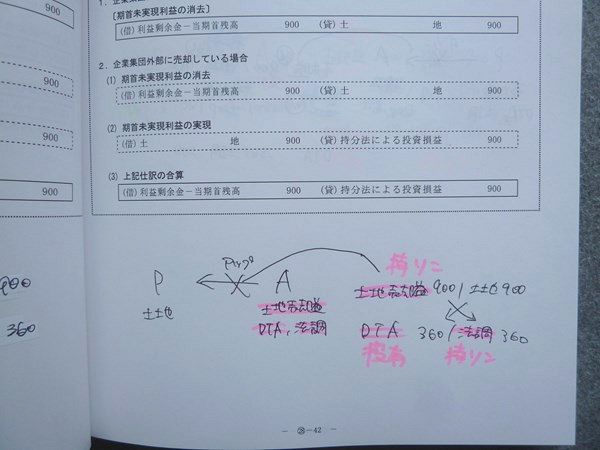 900
360
〔期首未実現利益の消去〕
(借) 利益剰余金－当期首残高 900 (貸) 土 地 900
2．企業集団外部に売却している場合
(1) 期首未実現利益の消去
(借) 利益剰余金－当期首残高 900 (貸) 土 地 900
(2) 期首未実現利益の実現
(借) 土 地 900 (貸) 持分法による投資損益 900
(3) 上記仕訳の合算
(借) 利益剰余金－当期首残高 900 (貸) 持分法による投資損益 900
持リニ
P A 土地売却益 900 / 土地 900
土地 土地売却益
DTA, 法調 DTA 360 / 法調 360
投有 持リニ
－ ㉘－42 －
900
900
900
900